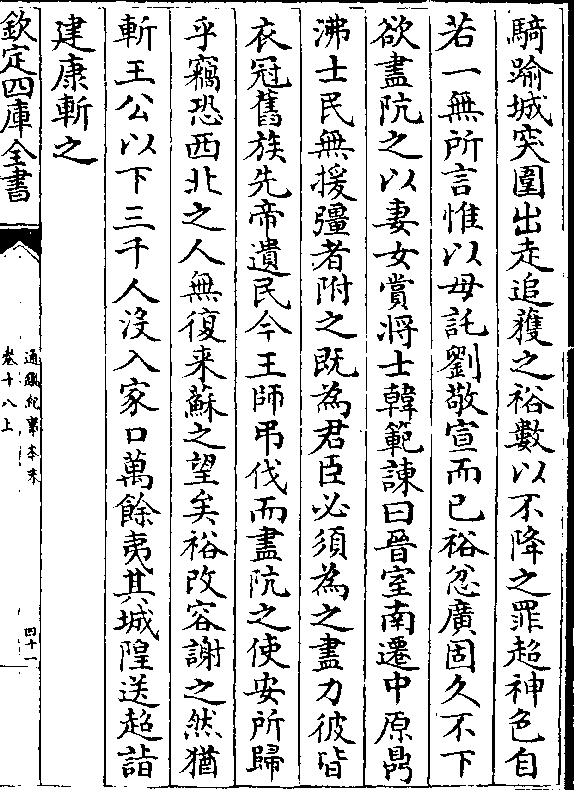 騎踰城突圍出走追獲之裕數以不降之罪超神色自
若一無所言惟以母託劉敬宣而已裕忿廣固久不下
欲盡阬之以妻女賞將士韓範諫曰晉室南遷中原鼎
沸士民無援彊者附之既為君臣必須為之盡力彼皆
衣冠舊族先帝遺民今王師弔伐而盡阬之使安所歸
乎竊恐西北之人無復来蘇之望矣裕改容謝之然猶
斬王公以下三千人沒入家口萬餘夷其城隍送超詣
建康斬之
欽定四庫全書
通鑑紀事本末
卷十八上
四十一